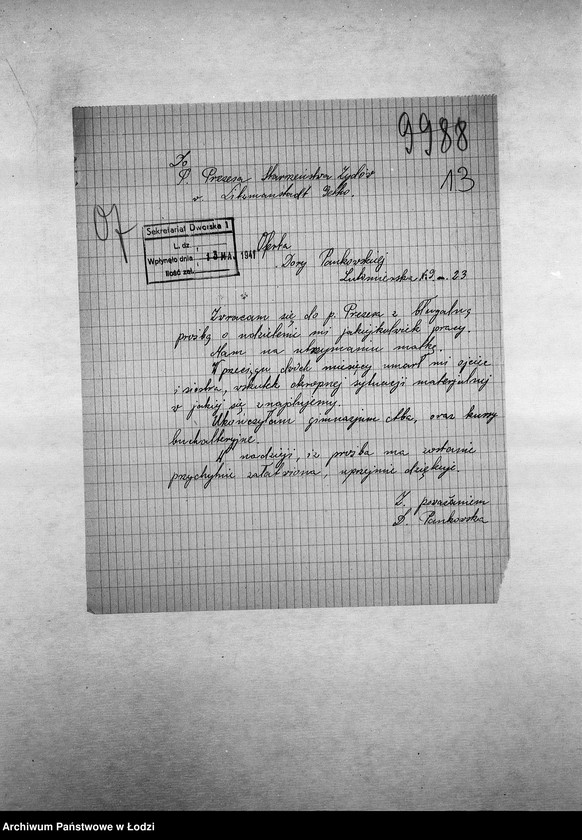 9988
13
07
Do
P. Prezesa Starszeństwa Żydów
w Litzmanstadt Getto.
Sekretariat Dworska 1
L. dz.
Wpłynęło dnia 13 MAJ. 1941
Ilość zał.
Oferta
Dory Pankowskiej
Lutomierska № 9 m. 23
Zwracam się do p. Prezesa z błagalną
prośbą o udzielenie mi jakiejkolwiek pracy.
Mam na utrzymaniu matkę.
W przeciągu dwóch miesięcy umarł mi ojciec
i siostra, wskutek okropnej sytuacji materjalnej
w jakiej się znajdujemy.
Ukończyłam gimnazjum, oraz kursy
buchalteryjne.
W nadzieji, iż prośba ma zostanie
przychylnie załatwiona, uprzejmie dziękuję.
Z poważaniem
D. Pankowska
Archiwum Państwowe w Łodzi